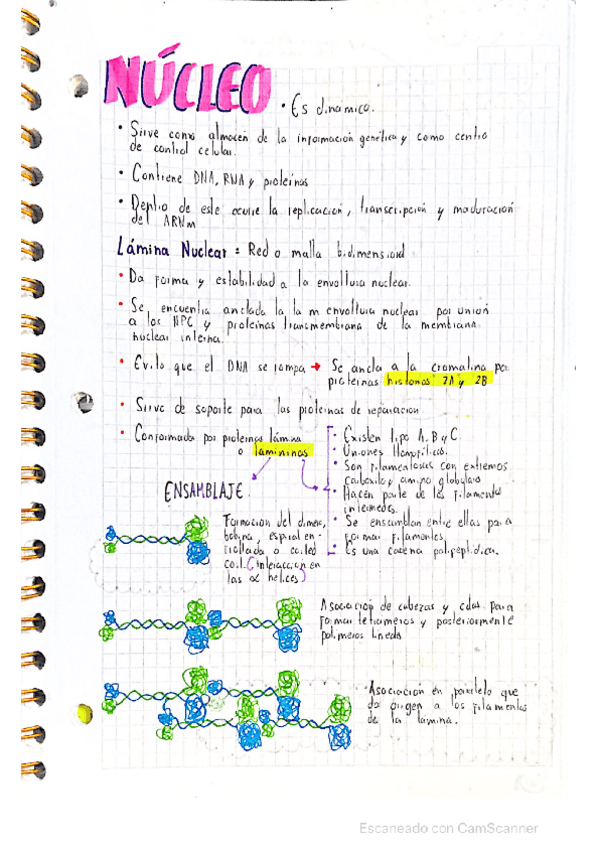 NÚCLEO
• Es dinámico.
• Sirve como almacén de la información genética y como centro
de control celular.
• Contiene DNA, RNA y proteínas
• Dentro de este ocurre la replicación, transcripción y maduración
del ARNm
Lámina Nuclear = Red o malla bidimensional
• Da forma y estabilidad a la envoltura nuclear.
• Se encuentra anclada la la m envoltura nuclear por unión
a los NPC y proteínas transmembrana de la membrana
nuclear interna.
• Evita que el DNA se rompa → Se ancla a la cromatina por
proteínas histonas 2A y 2B
• Sirve de soporte para las proteínas de reparación
• Conformada por proteínas lámina
o lamininas
• Existen tipo A, B y C.
• Uniones
• Son filamentosas con extremos
carboxilo y amino globulares
• Hacen parte de los filamentos
intermedios.
• Se ensamblan entre ellas para
formar filamentos.
• Es una cadena polipeptídica.
ENSAMBLAJE:
Formación del dímero,
bobina, espiral en-
rollada o coiled
coil. (interacción en
las α hélices)
Asociación de cabezas y colas para
formar tetrámeros y posteriormente
polímeros lineales
Asociación en paralelo que
da origen a los filamentos
de la lámina.
Escaneado con CamScanner